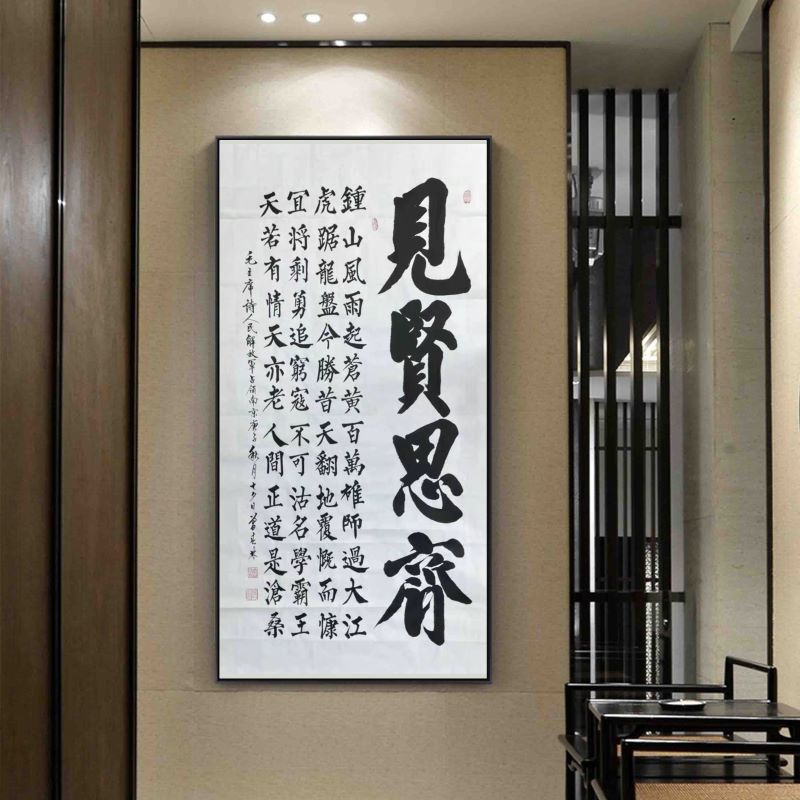 見賢思齊
鍾山風雨起蒼黄百萬雄師過大江
虎踞龍盤今勝昔天翻地覆慨而慷
冝将剩勇追窮寇不可沽名學霸王
天若有情天亦老人間正道是滄桑
毛主席詩人民解放軍占領南京庚子秋月